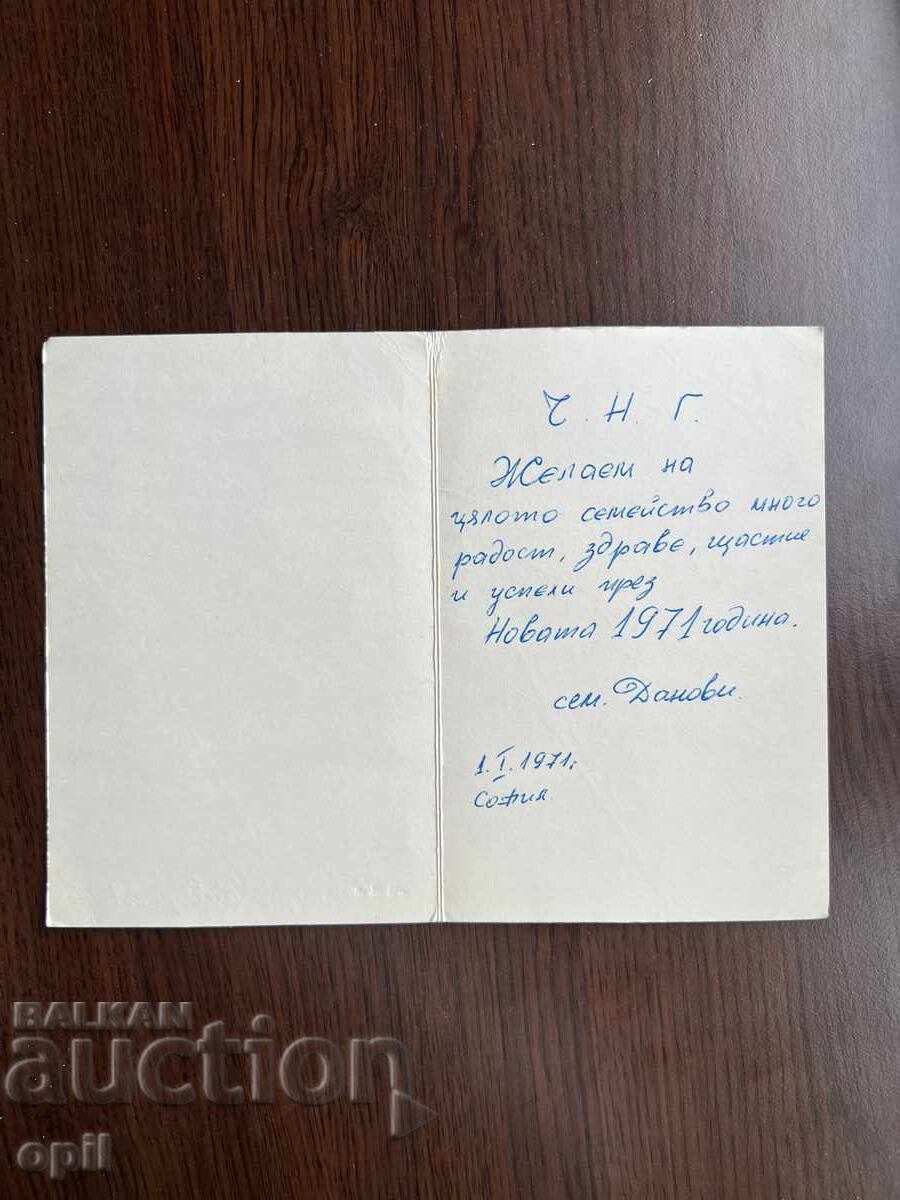 Ч. Н. Г.
Желаем на
цялото семейство много
радост, здраве, щастие
и успехи през
Новата 1971 година.
сем. Данови.
1.I.1971г.
София
BALKAN
auction
opil